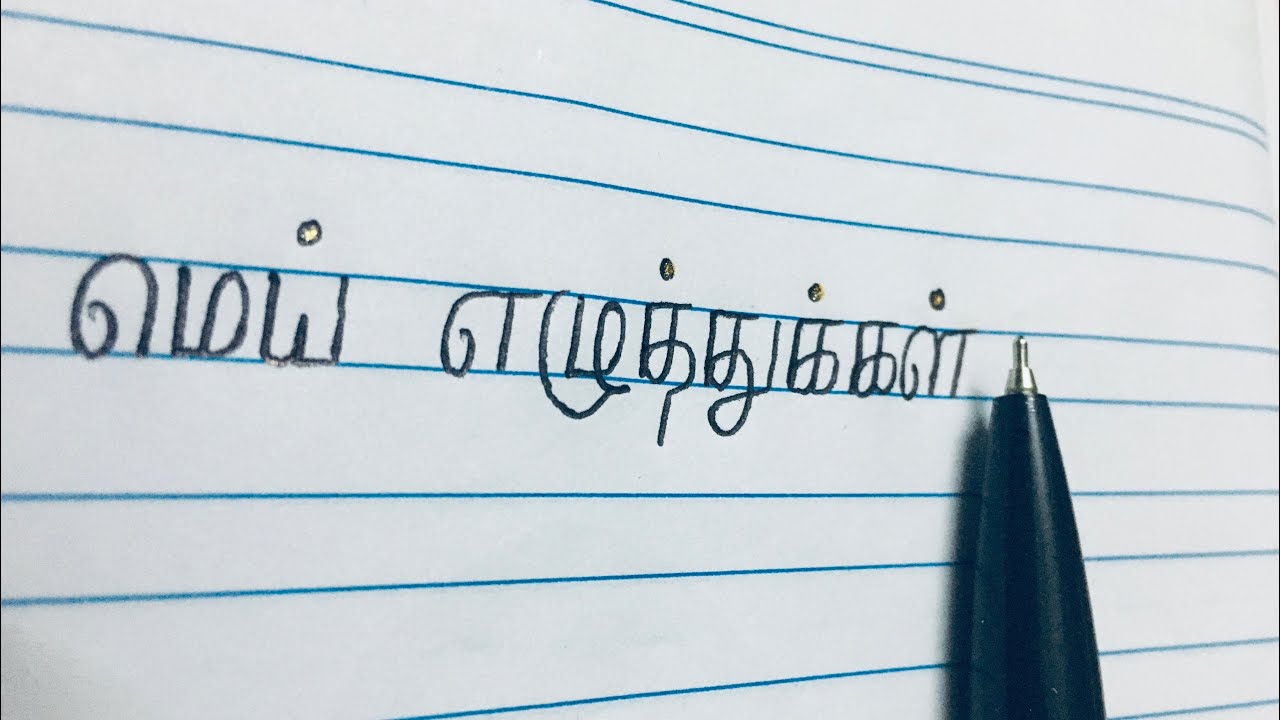 மெய் எழுத்துக்கள்